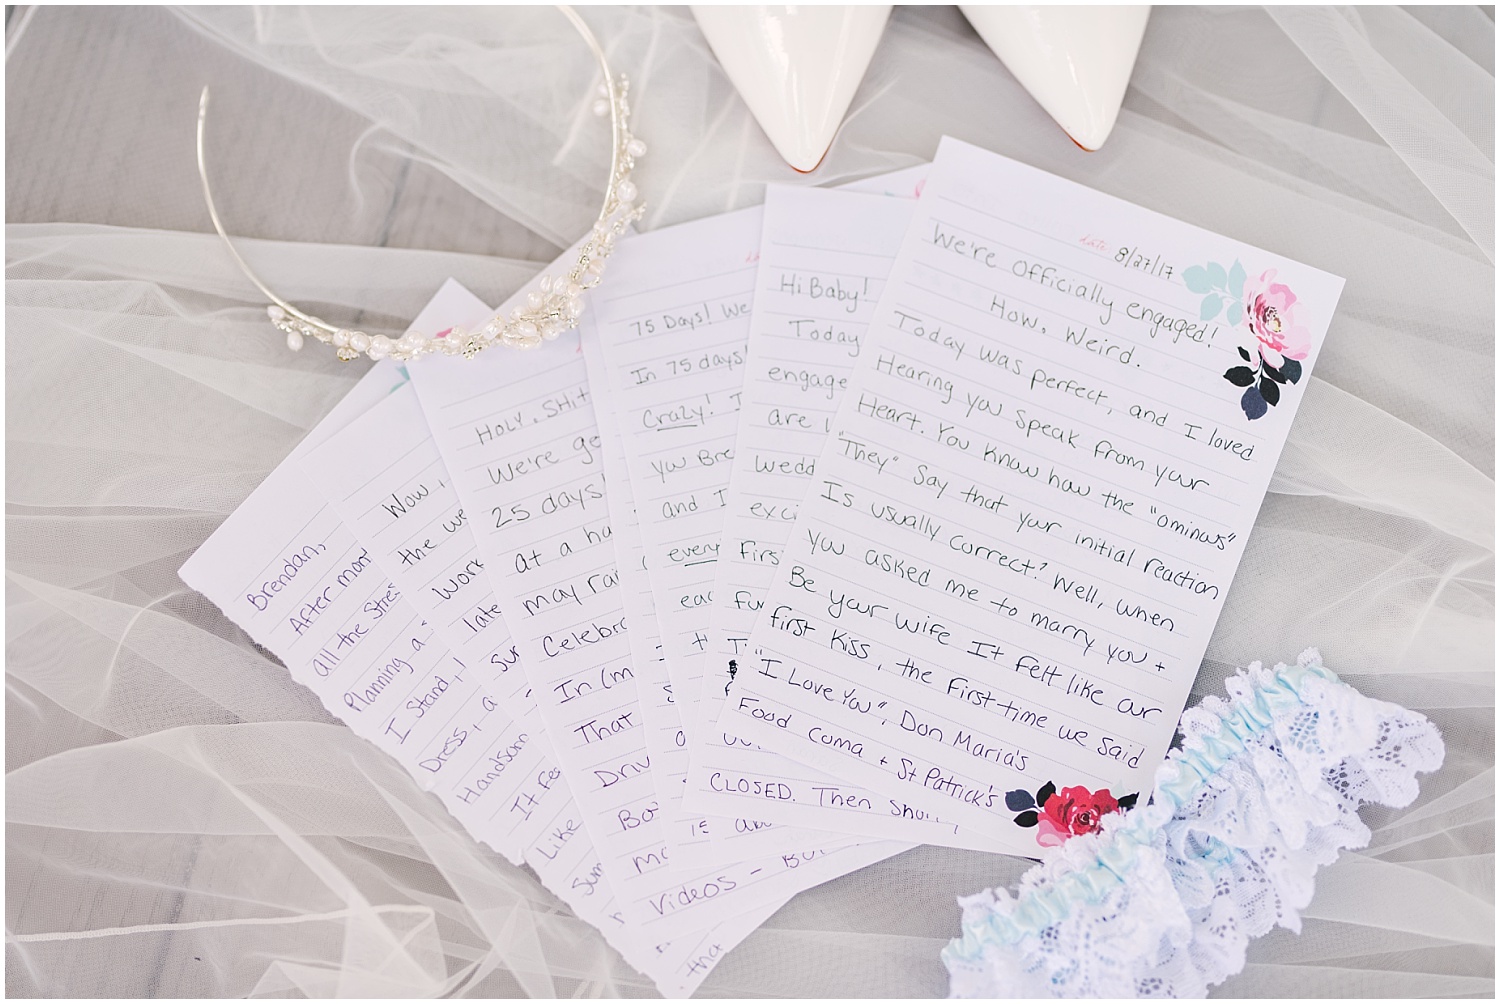 date 8/27/17
We're officially engaged!
How. Weird.
Today was perfect, and I loved
Hearing you speak from your
Heart. You know how the "ominous"
"They" say that your initial reaction
Is usually correct? Well, when
you asked me to marry you +
Be your wife It felt like our
first kiss, the first time we said
"I Love You", Don Maria's
Food coma + St Patrick's
Hi Baby!
Today
engage
are
wedd
exci
firs
fu
T
CLOSED. Then
75 Days! We
In 75 days!
Crazy! I
you Bre
and I
every
eac
HOLY. SHIT
We're ge
25 days!
at a ha
may rai
Celebr
In (m
That
Driv
Bo
mo
Videos - Bu
tha
Wow,
the we
work
late
Sur
Brendan,
After mon
all the stres
Planning a
I stand,
Dress, a
Handsom
It Fee
Like
Sum